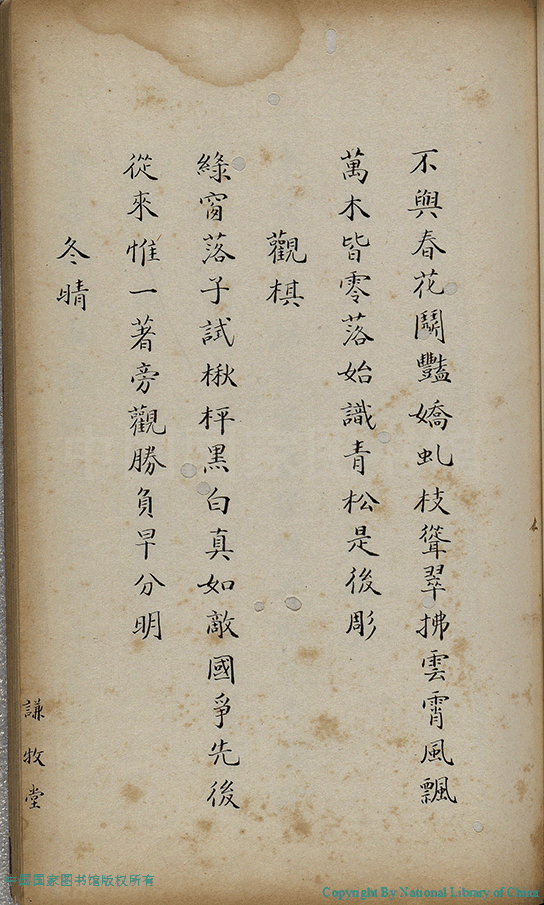 不與春花鬭豔嬌虬枝聳翠拂雲霄風飄
萬木皆零落始識青松是後彫
觀棋
綠窗落子試楸枰黑白真如敵國爭先後
從來惟一著旁觀勝負早分明
冬晴
謙牧堂
中国国家图书馆版权所有
Copyright By National Library of China